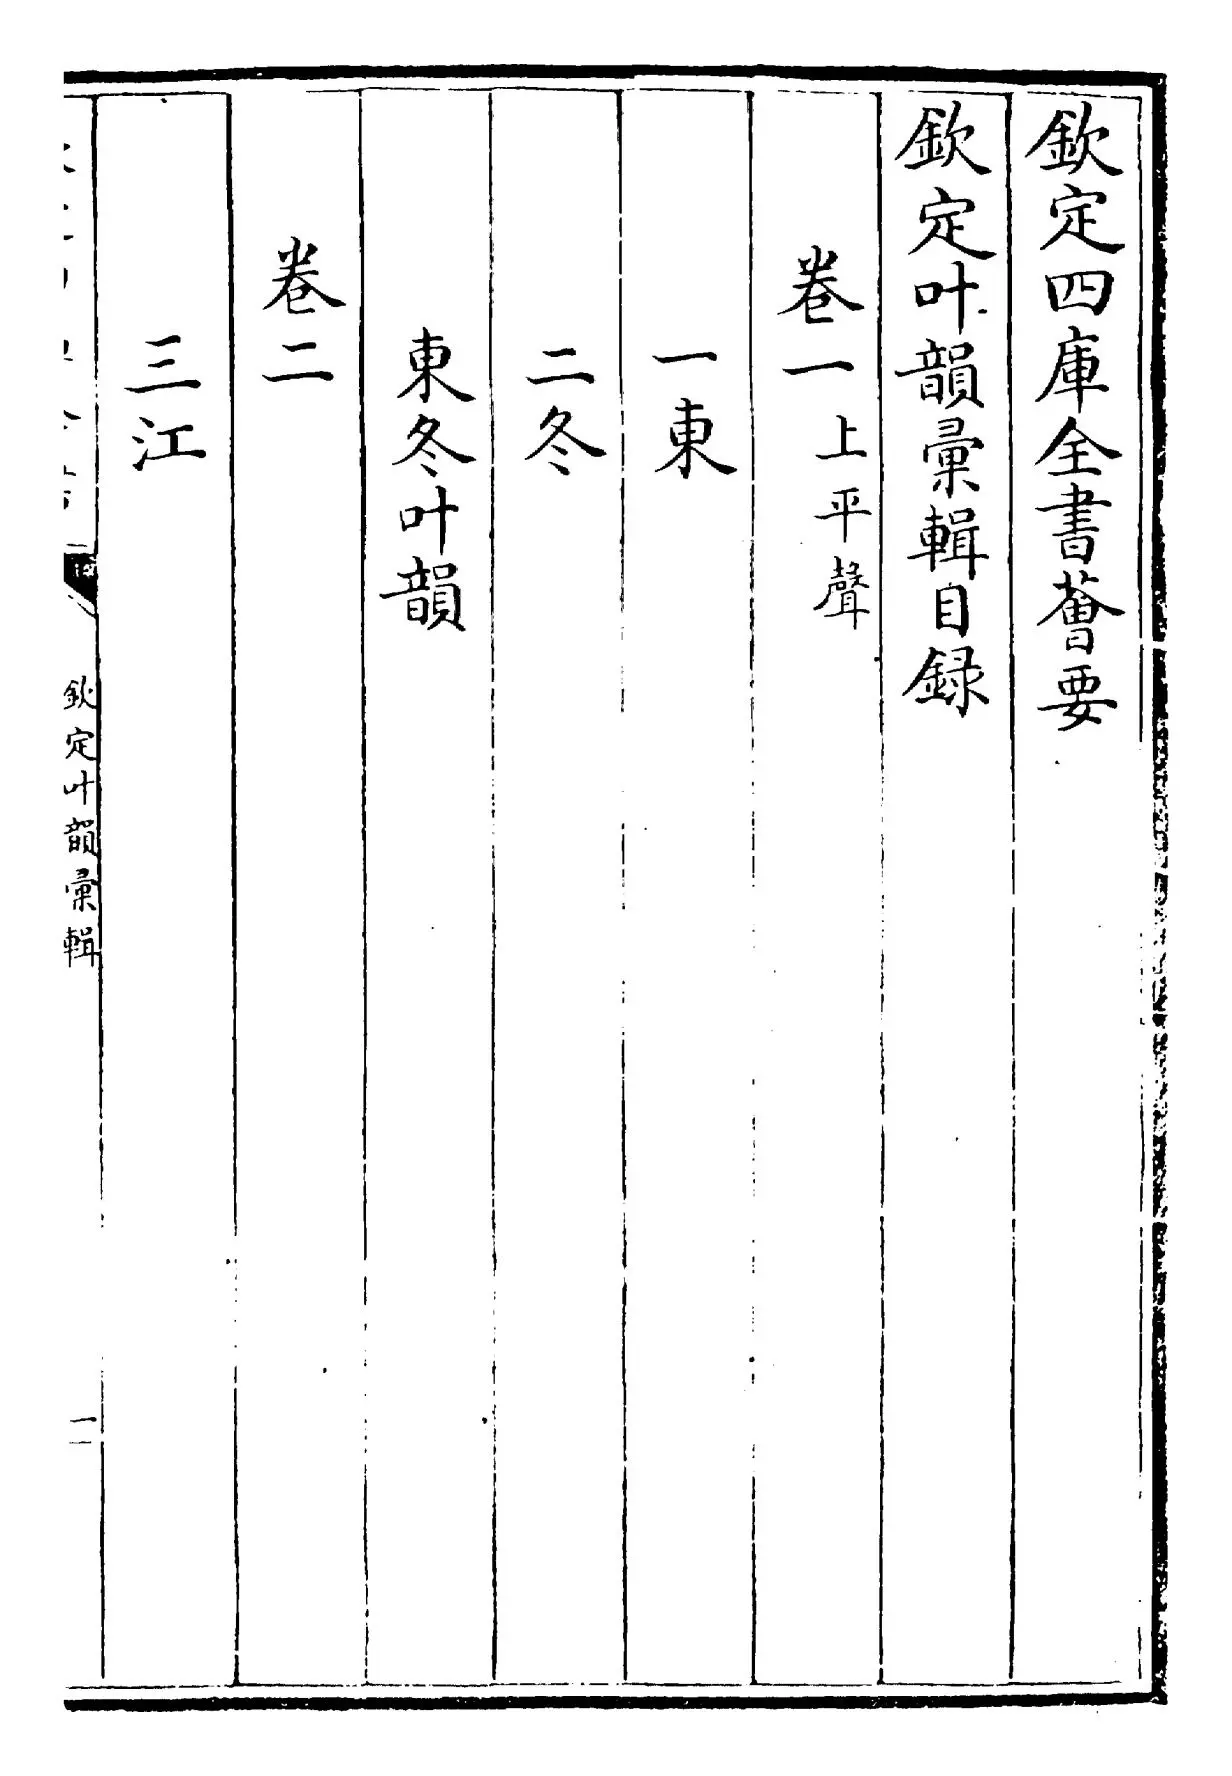 欽定四庫全書薈要
欽定叶韻彙輯目録
卷一上平聲
一東
二冬
東冬叶韻
卷二
三江
欽定叶韻彙輯
一